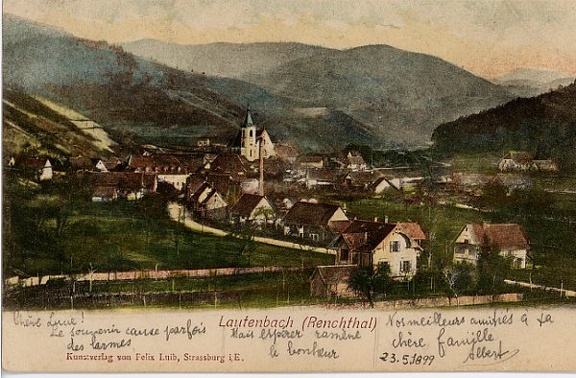 Chère Lucie!
Le souvenir cause parfois
des larmes
Kunstverlag von Felix Luib, Strassburg i/E.
Lautenbach (Renchthal)
Mais espérer ramène
le bonheur
Nos meilleurs amitiés à ta
chère famille
Albert
23.5.1899